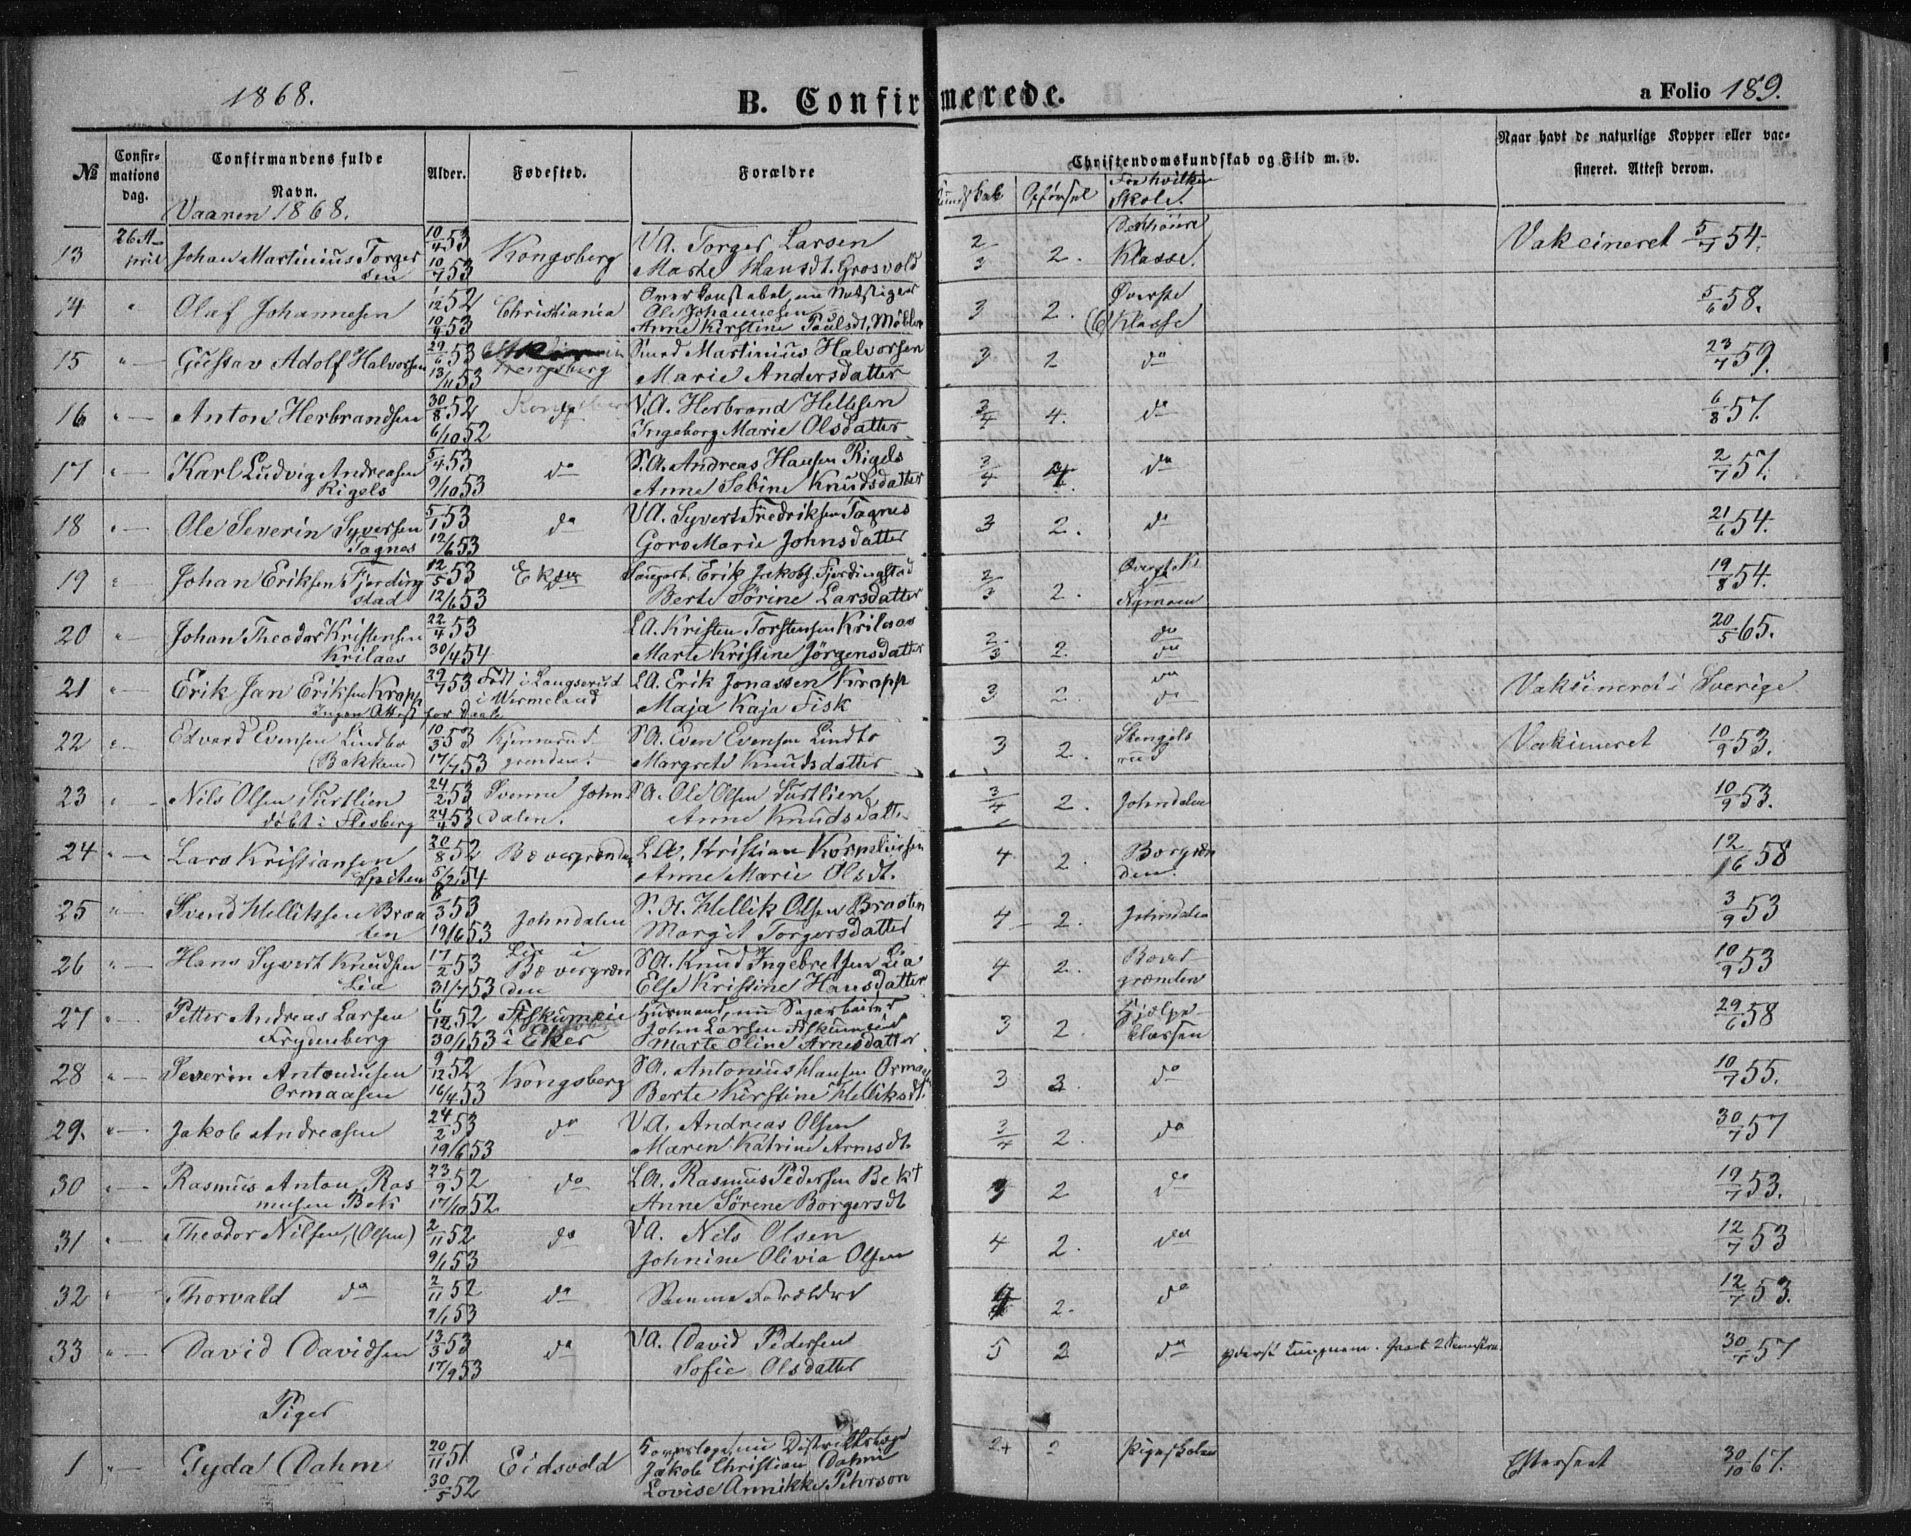 1868.
B. Confirmerede.
a Folio 189.
№
Confirmations dag.
Confirmandens fulde Navn.
Alder.
Fødested.
Forældre
Christendomskundskab og Flid m. v.
Kundskab Opførsel Fra hvilken Skole.
Naar havt de naturlige Kopper eller vaccineret. Attest derom.
Vaaren 1868.
13 26 April Johan Martinius Torgersen 10/4 53 10/7 53 Kongsberg V.A. Torger Larsen Marte Hansdt. Grosvold 2/3 2. Klasse. Vakcineret 5/7 54.
14 " Olaf Johannesen 1/12 52 10/4 53 Christiania Overkonstabel, nu Ole Johannesen Anne Kirstine Paulsdt. 3 2. Øverste Klasse 5/6 58.
15 " Gustav Adolf Halvorsen 29/6 53 13/11 53 Kongsberg Smed Martinius Halvorsen Marie Andersdatter 3 2 do 23/7 59.
16 " Anton Herbrandsen 30/8 52 6/10 52 do V.A. Herbrand Hellesen Ingeborg Marie Olsdatter 3/4 4. do 6/8 57.
17 " Karl Ludvig Andreasen Rigels 5/4 53 9/10 53 do S.A. Andreas Hansen Rigels Anne Sebine Knudsdatter 3/4 do 2/7 57.
18 " Ole Severin Syversen Tagnes 5/1 53 12/6 53 do V.A. Syvert Fredriksen Tagnes Goro Marie Johnsdatter 3 2. do 21/6 54.
19 " Johan Eriksen Fjerdingstad 12/5 53 12/6 53 Eker Erik Jakobs. Fjerdingstad Berte Sørine Larsdatter 2/3 2. Nymoen 19/8 54.
20 " Johan Theodor Kristensen Krilaas 22/4 53 30/4 54 L.A. Kristen Torstensen Krilaas Marte Kristine Jörgensdatter 2/3 2. do 20/5 65.
21 " Erik Jan Eriksen Kropp Ingen Attest for Daab 29/7 53 Födt i Langserud i Wermeland L.A. Erik Jonassen Kropp Maja Kaja Fisk 3 2. do Vakcineret i Sverige
22 " Edvard Evensen Lindbo (Bakken) 10/3 53 17/7 53 Kjennerudgrenden. S.A. Even Evensen Lindbo Margrete Knudsdatter 3 2. Stengelsrud Vakcineret 10/9 53.
23 " Nils Olsen Surtlien døbt i Flesberg 24/2 53 24/4 53 Svenne Johndalen. S.A. Ole Olsen Surtlien Anne Knudsdatter 3/4 2. Johndalen 10/9 53.
24 " Lars Kristiansen Spiten 20/8 52 5/2 54 Bævergrenden L.A. Kristian Korneliusen Anne Marie Olsdt. 4 2. 12/6 58
25 " Svend Helliksen Braaten 8/3 53 19/6 53 Johndalen S.A. Hellik Olsen Braaten Margit Torgersdatter 4 2. Johndalen 3/9 53
26 " Hans Syvert Knudsen Lia 17/2 53 31/7 53 Lia i Bævergrænden S.A. Knud Ingebretsen Lia Else Kristine Hansdatter 4 2. Bævergrænden 10/9 53
27 " Petter Andreas Larsen Frydenberg 6/12 52 30/1 53 i Eker Husmand, nu Sagarbeider John Larsen Marte Oline Arnesdatter 3 2. Hjelpeclassen 29/6 58
28 " Severin Antoniusen Ormaasen 9/12 52 16/4 53 Kongsberg S.A. Antonius Hansen Ormaasen Berte Kirstine Helliksdt. 3 3. do 10/7 55.
29. " Jakob Andreasen 24/2 53 19/6 53 do V.A. Andreas Olsen Maren Katrine Arnesdt. 3/4 2. do 30/7 57
30 " Rasmus Anton Rasmusen Bek 23/9 52 17/10 52 do L.A. Rasmus Pedersen Bek † Anne Sörene Borgersdt 3 2 do 19/7 53.
31 " Theodor Nilsen, (Olsen) 2/11 52 9/1 53 do V.A. Nils Olsen Johnine Olivia Olsen 4 2. do 12/7 53
32 " Thorvald do 2/11 52 9/1 53 do Samme Forældre 4 2. do 12/7 53.
33 " David Davidsen 13/3 53 17/9 53 do V.A. David Pedersen Sofie Olsdatter 5 2 do 30/7 57
Piger
1 " Gyda Dahm 20/11 51 30/5 52 Eidsvold Korpslæge, nu Distriktslæge Jakob Christian Dahm Lovise Annikke Pehrson 2+ 2 Pigeskolen Efterseet 30/10 67.